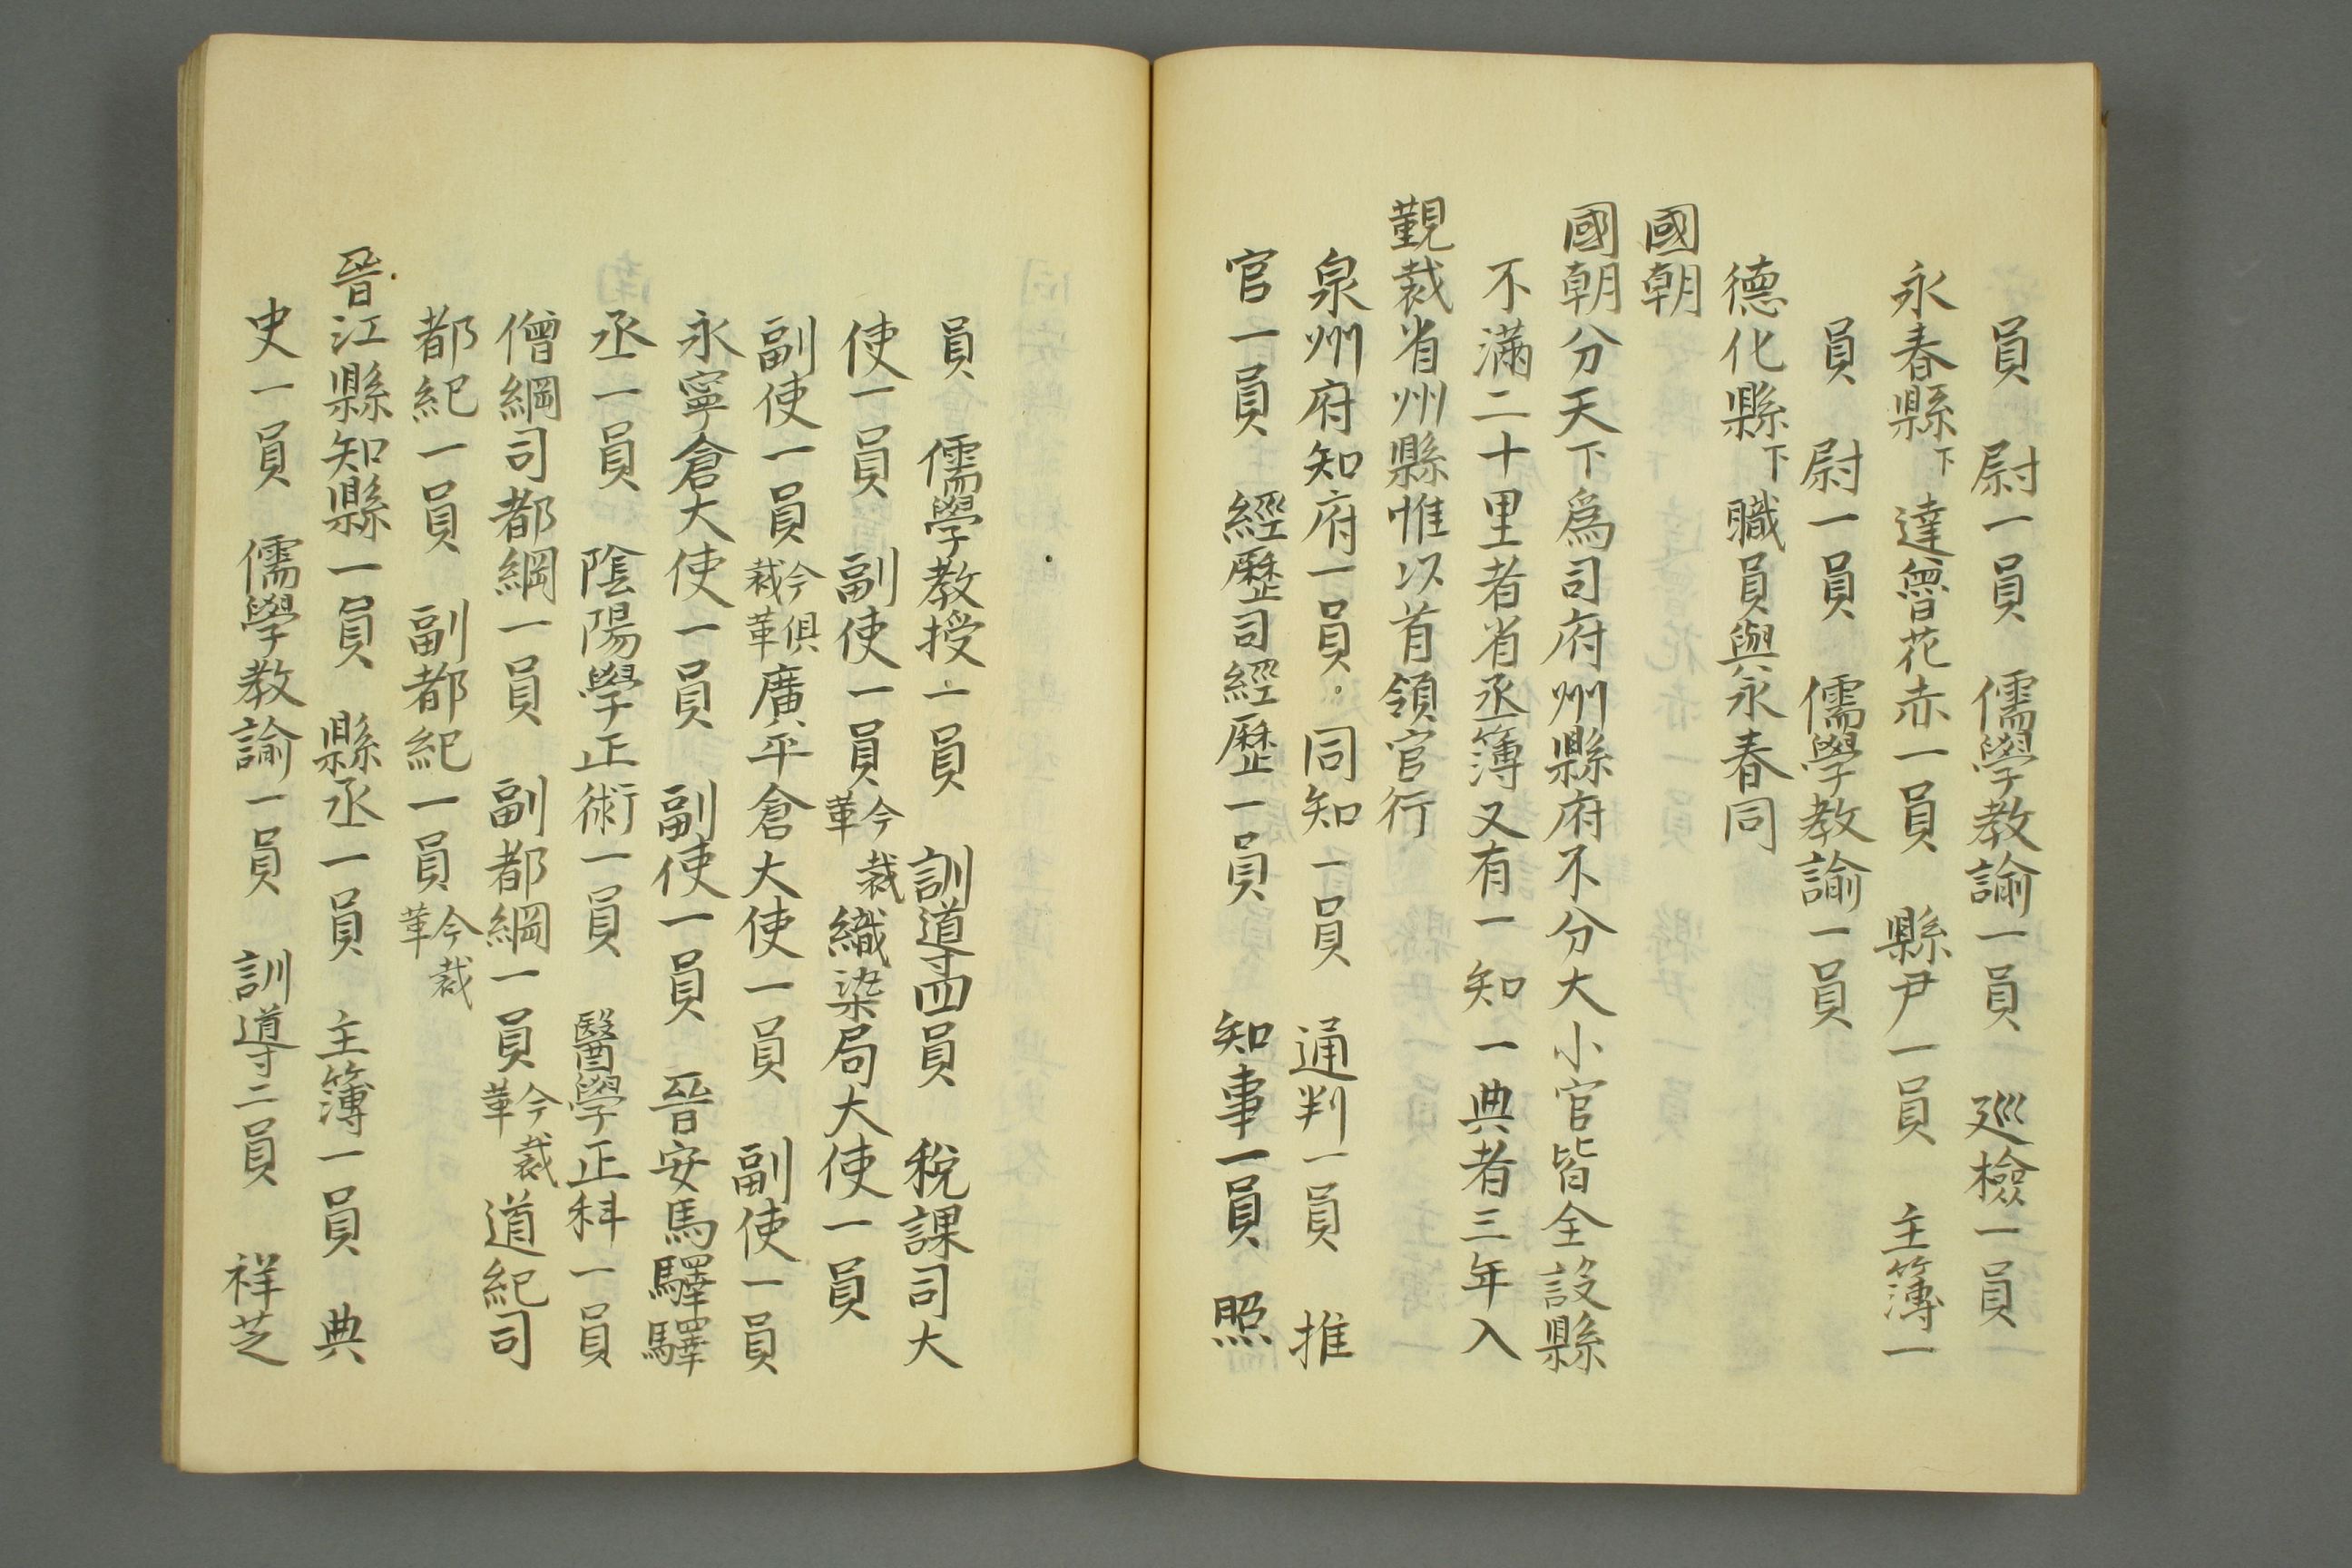 員　尉一員　儒學教諭一員　廵檢一員
永春縣下　達魯花赤一員　縣尹一員　主簿一
員　尉一員　儒學教諭一員
德化縣下職員與永春同
國朝
國朝分天下爲司府州縣府不分大小官皆全設縣
不滿二十里者省丞簿又有一知一典者三年入
覲裁省州縣惟以首領官行
泉州府知府一員。同知一員　通判一員　推
官一員　經歷司經歷一員　知事一員　照
員　儒學教授一員　訓導四員　稅課司大
使一員　副使一員今裁革織染局大使一員
副使一員今俱裁革廣平倉大使一員　副使一員
永寧倉大使一員　副使一員　晉安馬驛驛
丞一員　陰陽學正術一員　醫學正科一員
僧綱司都綱一員　副都綱一員今裁革道紀司
都紀一員　副都紀一員今裁革
晉江縣知縣一員　縣丞一員　主簿一員　典
史一員　儒學教諭一員　訓導二員　祥芝